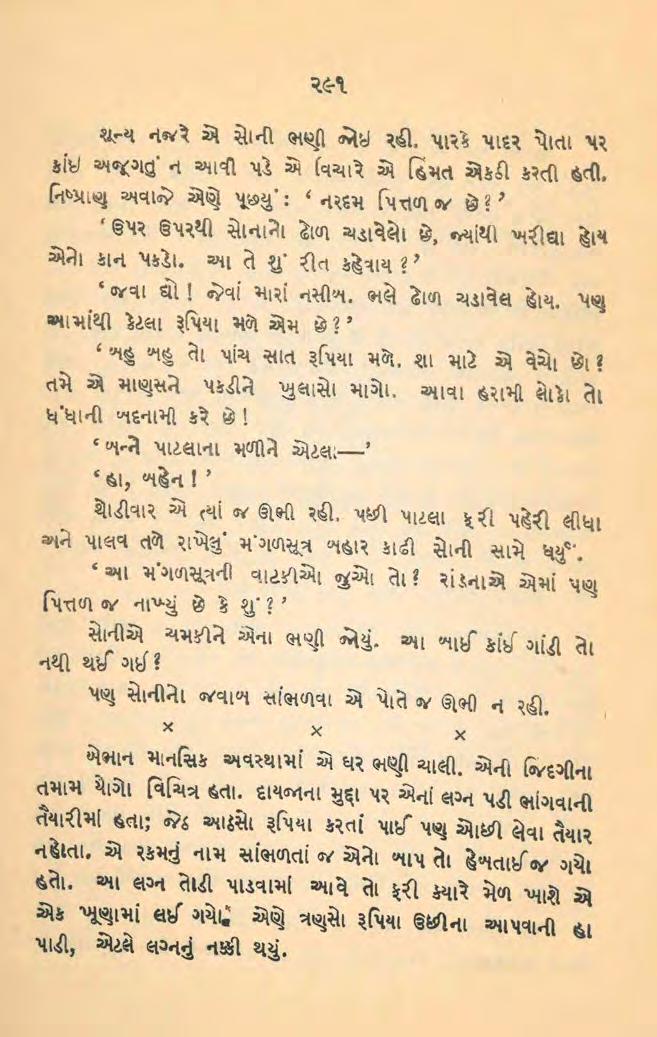 ૨૯૧
શૂન્ય નજરે એ સોની ભણી જોઇ રહી. પારકે પાદર પોતા પર
કાંઇ અજૂગતું ન આવી પડે એ વિચારે એ હિંમત એકઠી કરતી હતી.
નિષ્પ્રાણુ અવાજે એણે પૂછયું : ‘ નરદમ પિત્તળ જ છે ? ’
‘ ઉપર ઉપરથી સોનાનો ઢોળ ચડાવેલો છે, જ્યાંથી ખરીદ્યા હોય
એનો કાન પકડો. આ તે શું રીત કહેવાય ? ’
‘ જવા દ્યો ! જેવાં મારાં નસીબ. ભલે ઢોળ ચડાવેલ હોય. પણ
આમાંથી કેટલા રૂપિયા મળે એમ છે ? ’
‘ બહુ બહુ તો પાંચ સાત રૂપિયા મળે. શા માટે એ વેચો છો ?
તમે એ માણસને પકડીને ખુલાસો માગો. આવા હરામી લોકો તો
ધંધાની બદનામી કરે છે !
‘ બન્ને પાટલાના મળીને એટલા—’
‘ હા, બહેન ! ’
થોડીવાર એ ત્યાં જ ઊભી રહી. પછી પાટલા ફરી પહેરી લીધા
અને પાલવ તળે રાખેલું મંગળસૂત્ર બહાર કાઢી સોની સામે ધર્યું.
‘ આ મંગળસૂત્રની વાટકીઓ જુઓ તો ? રાંડનાએ એમાં પણ
પિત્તળ જ નાખ્યું છે કે શું ? ’
સોનીએ ચમકીને એના ભણી જોયું. આ બાઈ કાંઈ ગાંડી તો
નથી થઈ ગઈ ?
પણ સોનીનો જવાબ સાંભળવા એ પોતે જ ઊભી ન રહી.
× × ×
બેભાન માનસિક અવસ્થામાં એ ઘર ભણી ચાલી. એની જિંદગીના
તમામ યોગો વિચિત્ર હતા. દાયજાના મુદ્દા પર એનાં લગ્ન પડી ભાંગવાની
તૈયારીમાં હતા; જેઠ આઠસો રૂપિયા કરતાં પાઈ પણ ઓછી લેવા તૈયાર
નહોતા. એ રકમનું નામ સાંભળતાં જ એનો બાપ તો હેબતાઈ જ ગયો
હતો. આ લગ્ન તોડી પાડવામાં આવે તો ફરી ક્યારે મેળ ખાશે એ
એક ખૂણામાં લઈ ગયો. એણે ત્રણસો રૂપિયા ઉછીના આપવાની હા
પાડી, એટલે લગ્નનું નક્કી થયું.